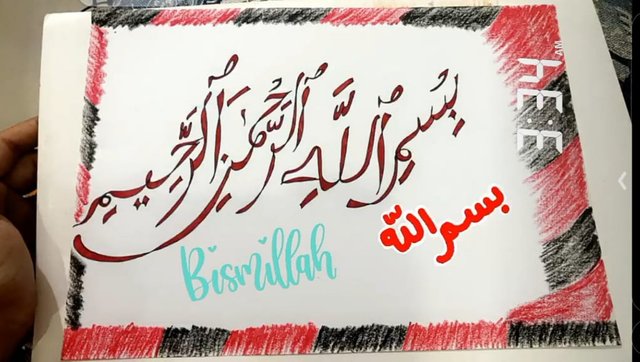 بِسْمِ اللَّهِ الرَّحْمَٰنِ الرَّحِيمِ
بسم الله
Bismillah